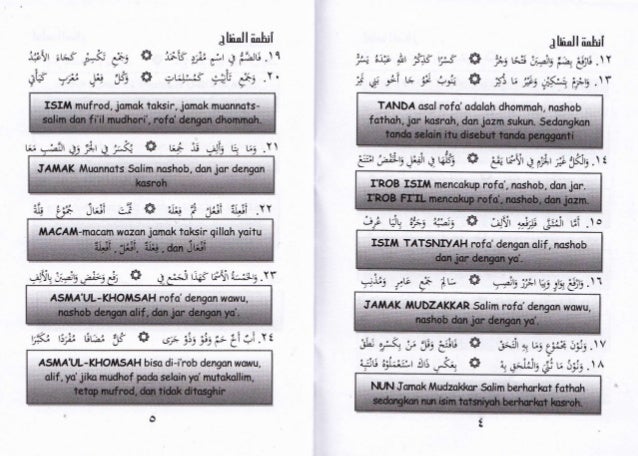 أنظمة المفتاح
١٢. فَارْفَعْ بِضَمٍّ وَانْصِبَنْ فَتْحًا وَجُرَّ ۞ كَسْرًا كَذِكْرُ اللهِ عَبْدَهُ يَسُرَّ
١٣. وَاجْزِمْ بِتَسْكِيْنٍ وَغَيْرُ مَا ذُكِرْ ۞ يَنُوبُ نَحْوُ جَا أَخُو بَنِي نَمِرْ
TANDA asal rofa' adalah dhommah, nashob
fathah, jar kasrah, dan jazm sukun. Sedangkan
tanda selain itu disebut tanda pengganti
١٤. وَالْكُلُّ غَيْرَ الْجَزْمِ فِي الْأَسْمَا يَقَعْ ۞ وَكُلُّهَا فِي الْفِعْلِ وَالْخَفْضُ امْتَنَعْ
I'ROB ISIM mencakup rofa', nashob, dan jar.
I'ROB FI'IL mencakup rofa', nashob, dan jazm.
١٥. أَمَّا الْمُثَنَّى فَلِرَفْعِهِ الْأَلِفْ ۞ وَنَصْبُهُ وَجَرُّهُ بِالْيَا عُرِفْ
ISIM TATSNIYAH rofa' dengan alif, nashob
dan jar dengan ya'.
١٦. وَارْفَعْ بِوَاوٍ وَبِيَا اجْرُرْ وَانْصِبِ ۞ سَالِمَ جَمْعِ عَامِرٍ وَمُذْنِبِ
JAMAK MUDZAKKAR Salim rofa' dengan wawu,
nashob dan jar dengan ya'.
١٧. وَنُوْنَ مَجْمُوْعٍ وَمَا بِهِ الْتَحَقْ ۞ فَافْتَحْ وَقَلَّ مَنْ بِكَسْرِهِ نَطَقْ
١٨. وَنُوْنُ مَا ثُنِّيَ وَالْمُلْحَقِ بِهِ ۞ بِعَكْسِ ذَاكَ اسْتَعْمَلُوْهُ فَانْتَبِهْ
NUN Jamak Mudzakkar Salim berharkat fathah
sedangkan nun isim tatsniyah berharkat kasroh.
٤
أنظمة المفتاح
١٩. فَالضَّمُّ فِي اسْمٍ مُفْرَدٍ كَأَحْمَدُ ۞ وَجَمْعِ تَكْسِيْرٍ كَجَاءَ الْأَعْبُدُ
٢٠. وَجَمْعِ تَأْنِيْثٍ كَمُسْلِمَاتِ ۞ وَكُلِّ فِعْلٍ مُعْرَبٍ كَيَأْتِي
ISIM mufrod, jamak taksir, jamak muannats-
salim dan fi'il mudhori', rofa' dengan dhommah.
٢١. وَمَا بِتَا وَأَلِفٍ قَدْ جُمِعَا ۞ يُكْسَرُ فِي الْجَرِّ وَفِي النَّصْبِ مَعَا
JAMAK Muannats Salim nashob, dan jar dengan
kasroh
٢٢. أَفْعِلَةٌ أَفْعُلُ ثُمَّ فِعْلَةْ ۞ ثُمَّتَ أَفْعَالٌ جُمُوْعُ قِلَّةْ
MACAM-macam wazan jamak taksir qillah yaitu
أَفْعِلَةٌ ,أَفْعُلُ ,فِعْلَةٌ, dan أَفْعَالٌ
٢٣. وَالْخَمْسَةُ الْأَسْمَا كَهٰذَا الْجَمْعِ فِي ۞ رَفْعٍ وَخَفْضٍ وَانْصِبَنْ بِالْأَلِفِ
ASMA'UL-KHOMSAH rofa' dengan wawu,
nashob dengan alif, dan jar dengan ya'.
٢٤. أَبٌ أَخٌ حَمٌ وَفُوْ وَذُوْ جَرَى ۞ كُلٌّ مُضَافًا مُفْرَدًا مُكَبَّرَا
ASMA'UL-KHOMSAH bisa di-i'rob dengan wawu,
alif, ya' jika mudhof pada selain ya' mutakallim,
tetap mufrod, dan tidak ditasghir
٥